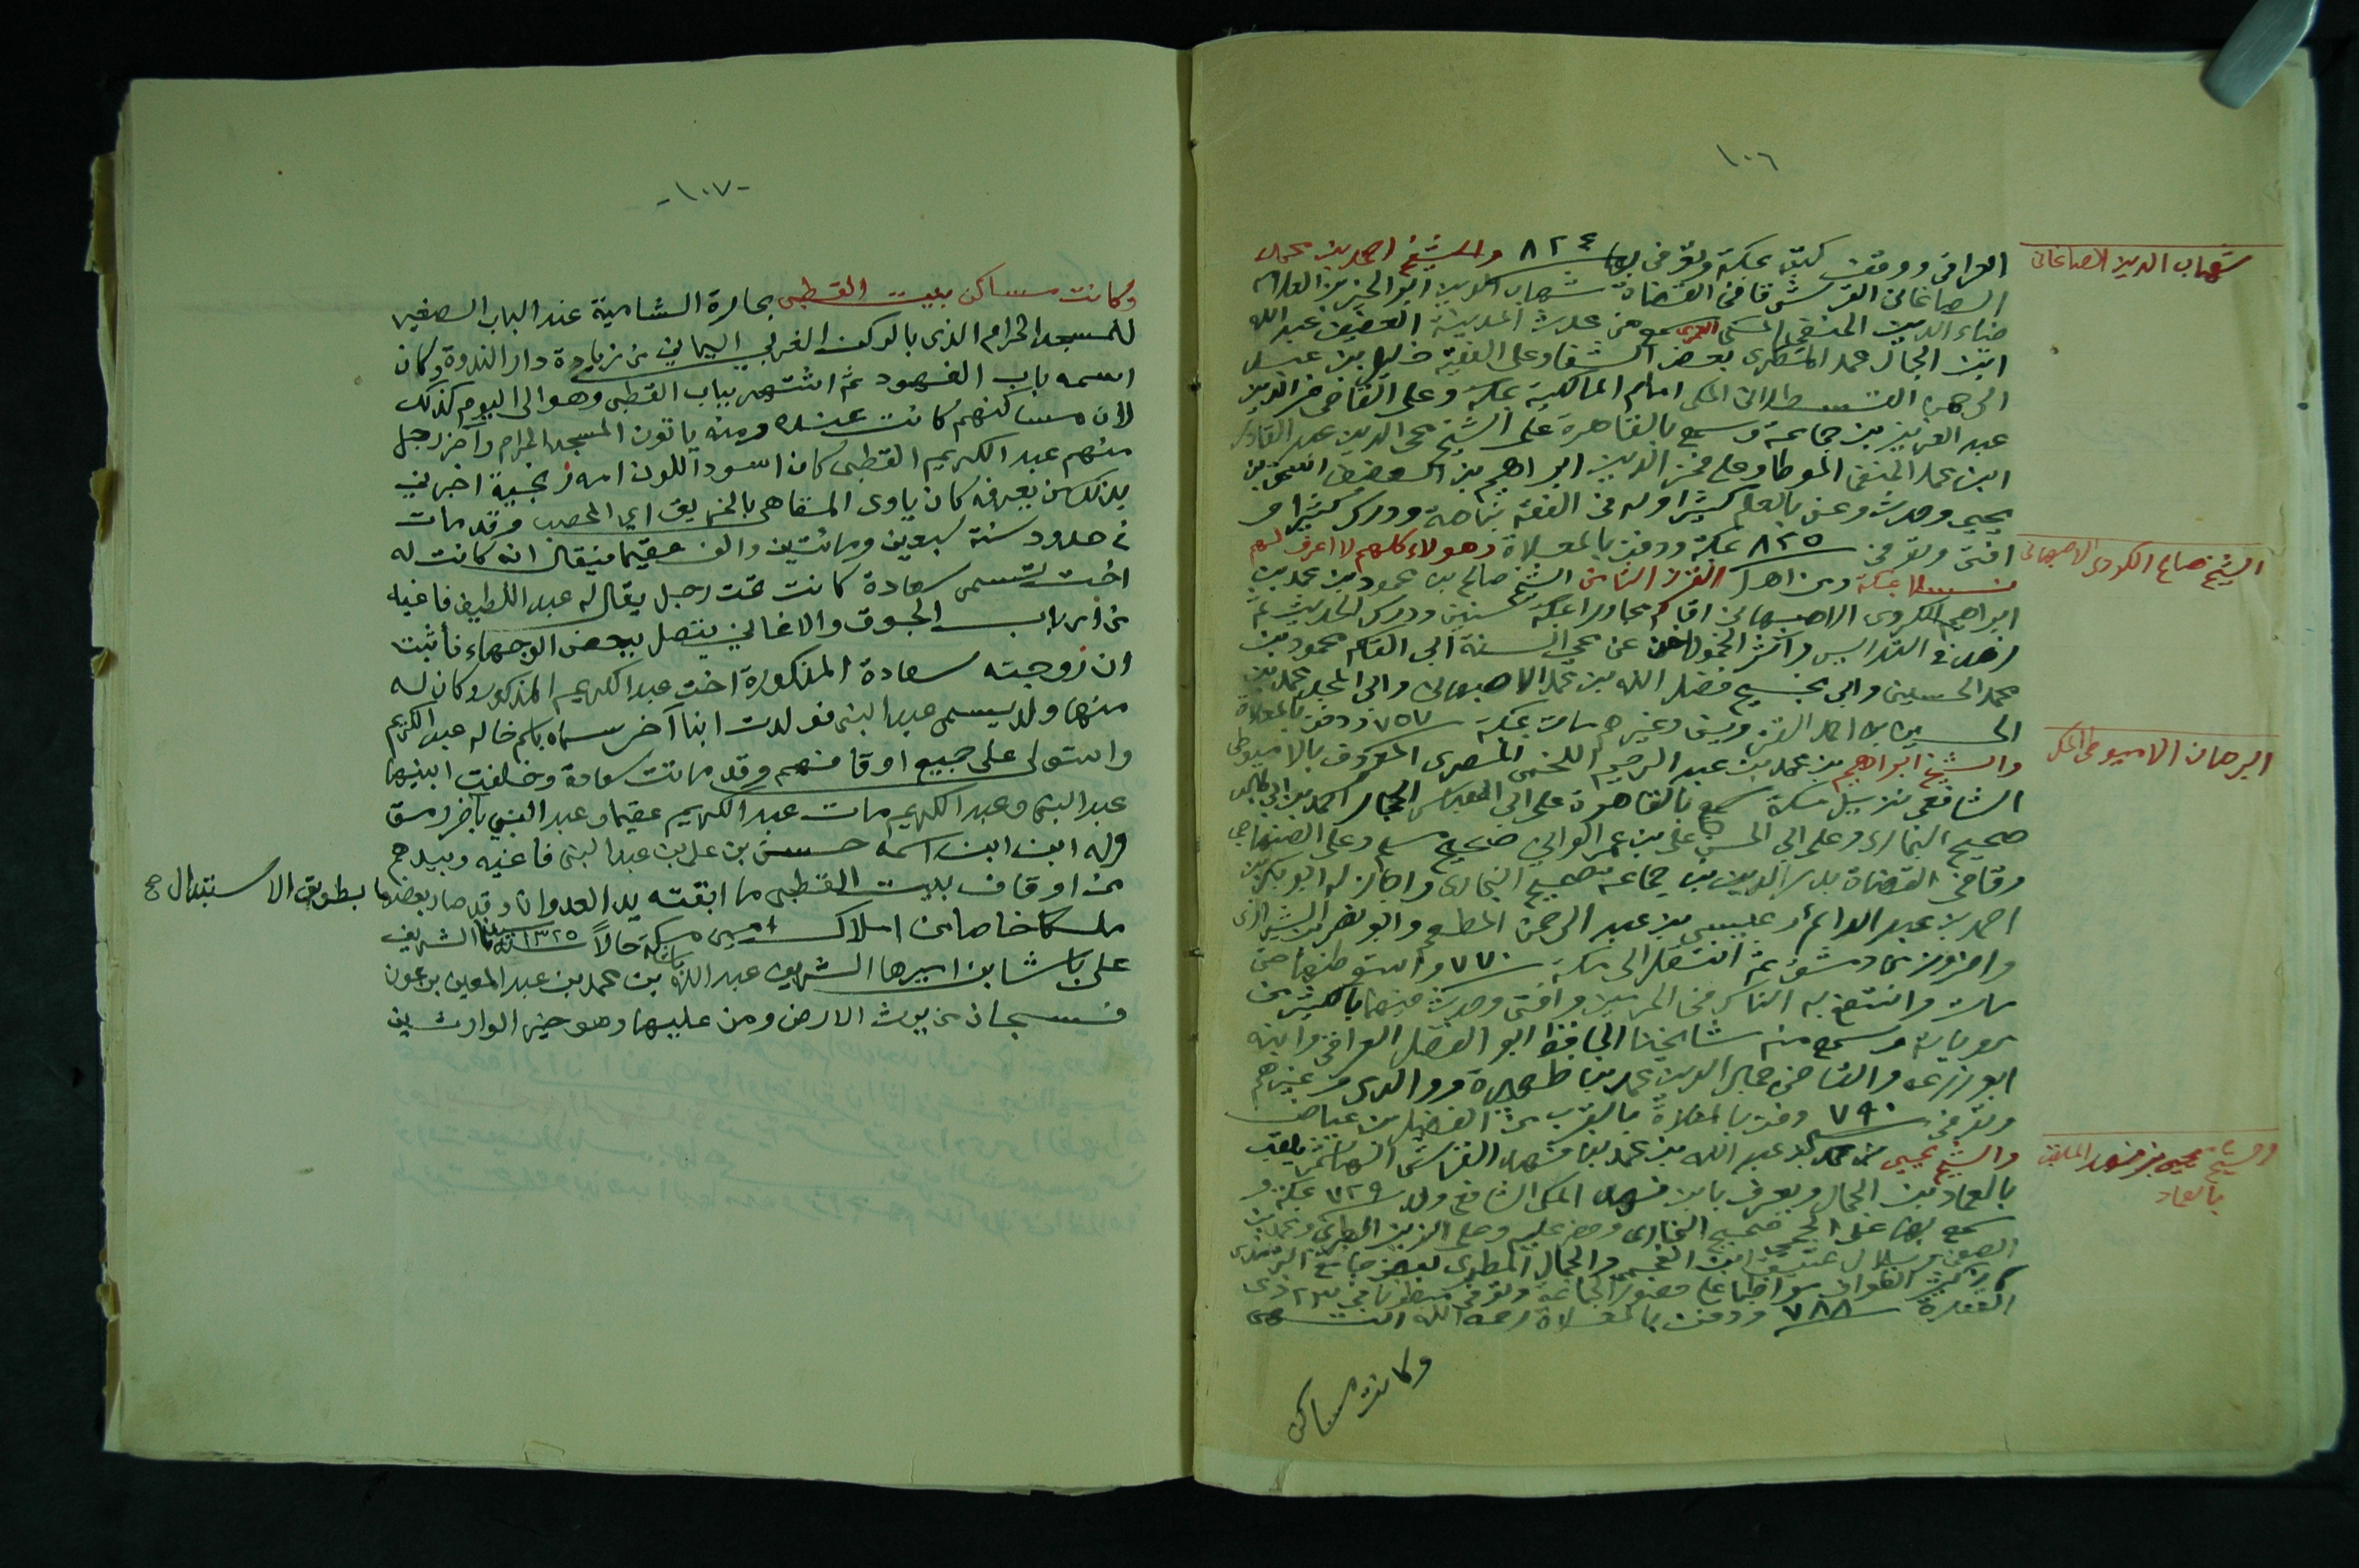 ١٠٦
شهاب الدين الصاغاني
العراقي ووقف كتبه بمكة وتوفى بها سنة ٨٢٤ والشيخ احمد بن محمد
الصاغاني القرشى قاضى القضاة شهاب الدين ابو الخير بن العلامه
ضياء الدين الحنفي المكى العمرى سمع من محدث المدينة العفيف عبد الله
ابن الجمال محمد المطرى بعض الشفاء وعلى الفقيه خليل بن عبد
الرحمن القسطلانى المكى امام المالكية بمكة وعلى القاضى عز الدين
عبد العزيز بن جماعة وسمع بالقاهرة على الشيخ محى الدين عبد القادر
ابن محمد الحنفى الموطا وعلى فخر الدين ابراهيم بن اسحق بن
يحيى وحدث وعنى بالعلم كثيرا وله فى الفقه نباهة ودرس كثيرا و
الشيخ صالح الكردى الاصبهانى
افتى وتوفى سنة ٨٢٥ بمكة ودفن بالمعلاة وهولاء كلهم لا اعرف لهم
نسلا بمكة ومن اهل القرن الثامن الشيخ صالح بن محمود بن محمد بن
ابراهيم الكردى الاصبهانى اقام مجاورا بمكة سنين ودرس الحديث ثم
زهد فى التدريس واثر الخمول عن محى السنة ابى القاسم محمود بن
محمد الحسينى وابى نجيح فضل الله بن محمد الاصبهانى وابى المجد محمد بن
الحسين بن احمد القزوينى وغيرهم مات بمكة سنة ٧٥٧ ودفن بالمعلاة
البرهان الاميوطى المكى
والشيخ ابراهيم بن محمد بن عبد الرحيم اللخمى المصرى المعروف بالاميوطى
الشافعى نزيل مكة سمع بالقاهرة على ابى العباس الحجار احمد بن ابى طالب
صحيح البخارى وعلى ابى الحسن على بن عمر الوانى صحيح مسلم وعلى الصنهاجى
وقاضى القضاة بدر الدين بن جماعة صحيح البخارى واجاز له ابو بكر بن
احمد بن عبد الدائم وعيسى بن عبد الرحمن المطعم وابو نصر بن الشيرازى
واخرون من دمشق ثم انتقل الى مكة سنة ٧٧٠ واستوطنها حتى
مات وانتفع به الناس فى الحرمين وافتى وحدث فيهما بالكثير من
مروياته وسمع منه مشايخنا الحافظ ابو الفضل العراقى وابنه
ابو زرعه والقاضى جمال الدين محمد بن ظهيرة ووالدى وغيرهم
وتوفى سنة ٧٩٠ ودفن بالمعلاة بالقرب من الفضيل بن عياض
والشيخ يحيى بن فهد الملقب
بالعماد
والشيخ يحيى بن محمد بن عبد الله بن محمد بن فهد القرشى الهاشمى يلقب
بالعماد بن الجمال ويعرف بابن فهد المكى الشافعى ولد سنة ٧٢٩ بمكة و
سمع بها على الحجى صحيح البخارى وحضر عليه وعلى الزين الطبرى ومحمد بن
الصفى وبلال عتيق ابن العجمى والجمال المطرى بعض جامع الترمذى
كان كثير الطواف مواظبا على حضور الجماعة وتوفى مبطونا فى ٢٣ ذى
القعدة سنة ٧٨٨ ودفن بالمعلاة رحمه الله انتهى
وكانت مساكن
-١٠٧-
وكانت مساكن بيت القطبى بحارة الشامية عند الباب الصغير
للمسجد الحرام الذى بالركن الغربي اليماني من زيادة دار الندوة وكان
اسمه باب الفهود ثم اشتهر بباب القطبى وهو الى اليوم كذلك
لان مساكنهم كانت عنده ومنه ياتون المسجد الحرام وآخر رجل
منهم عبد الكريم القطبى كان اسود اللون امه زنجية اخبرني
بذلك من يعرفه كان ياوى المقاهى بالخريق اى المحصب وقد مات
في حدود سنة سبعين ومائتين والف عقيما فيقال انه كانت له
اخت تسمى سعادة كانت تحت رجل يقال له عبد اللطيف فاغيه
من ارباب الجوق والاغاني يتصل ببعض الوجهاء فأثبت
ان زوجته سعادة المذكورة اخت عبد الكريم المذكور وكان له
منها ولد يسمى عبد النبى فولدت ابنا آخر سماه باسم خاله عبد الكريم
واستولى على جميع اوقافهم وقد ماتت سعادة وخلفت ابنيها
عبد النبى وعبد الكريم مات عبد الكريم عقيما وعبد النبي باخر رمق
وله ابن ابن اسمه حسن بن على بن عبد النبى فاغيه وبيدهم
من اوقاف بيت القطبى ما ابقته يد العدوان وقد صار بعضها بطريق الاستبدال صح
ملكا خاصا من املاك امير مكة حالاً سنة ١٣٢٥ سيدنا الشريف
على باشا بن اميرها الشريف عبد الله باشا بن محمد بن عبد المعين بن عون
فسبحان من يرث الارض ومن عليها وهو خير الوارثين